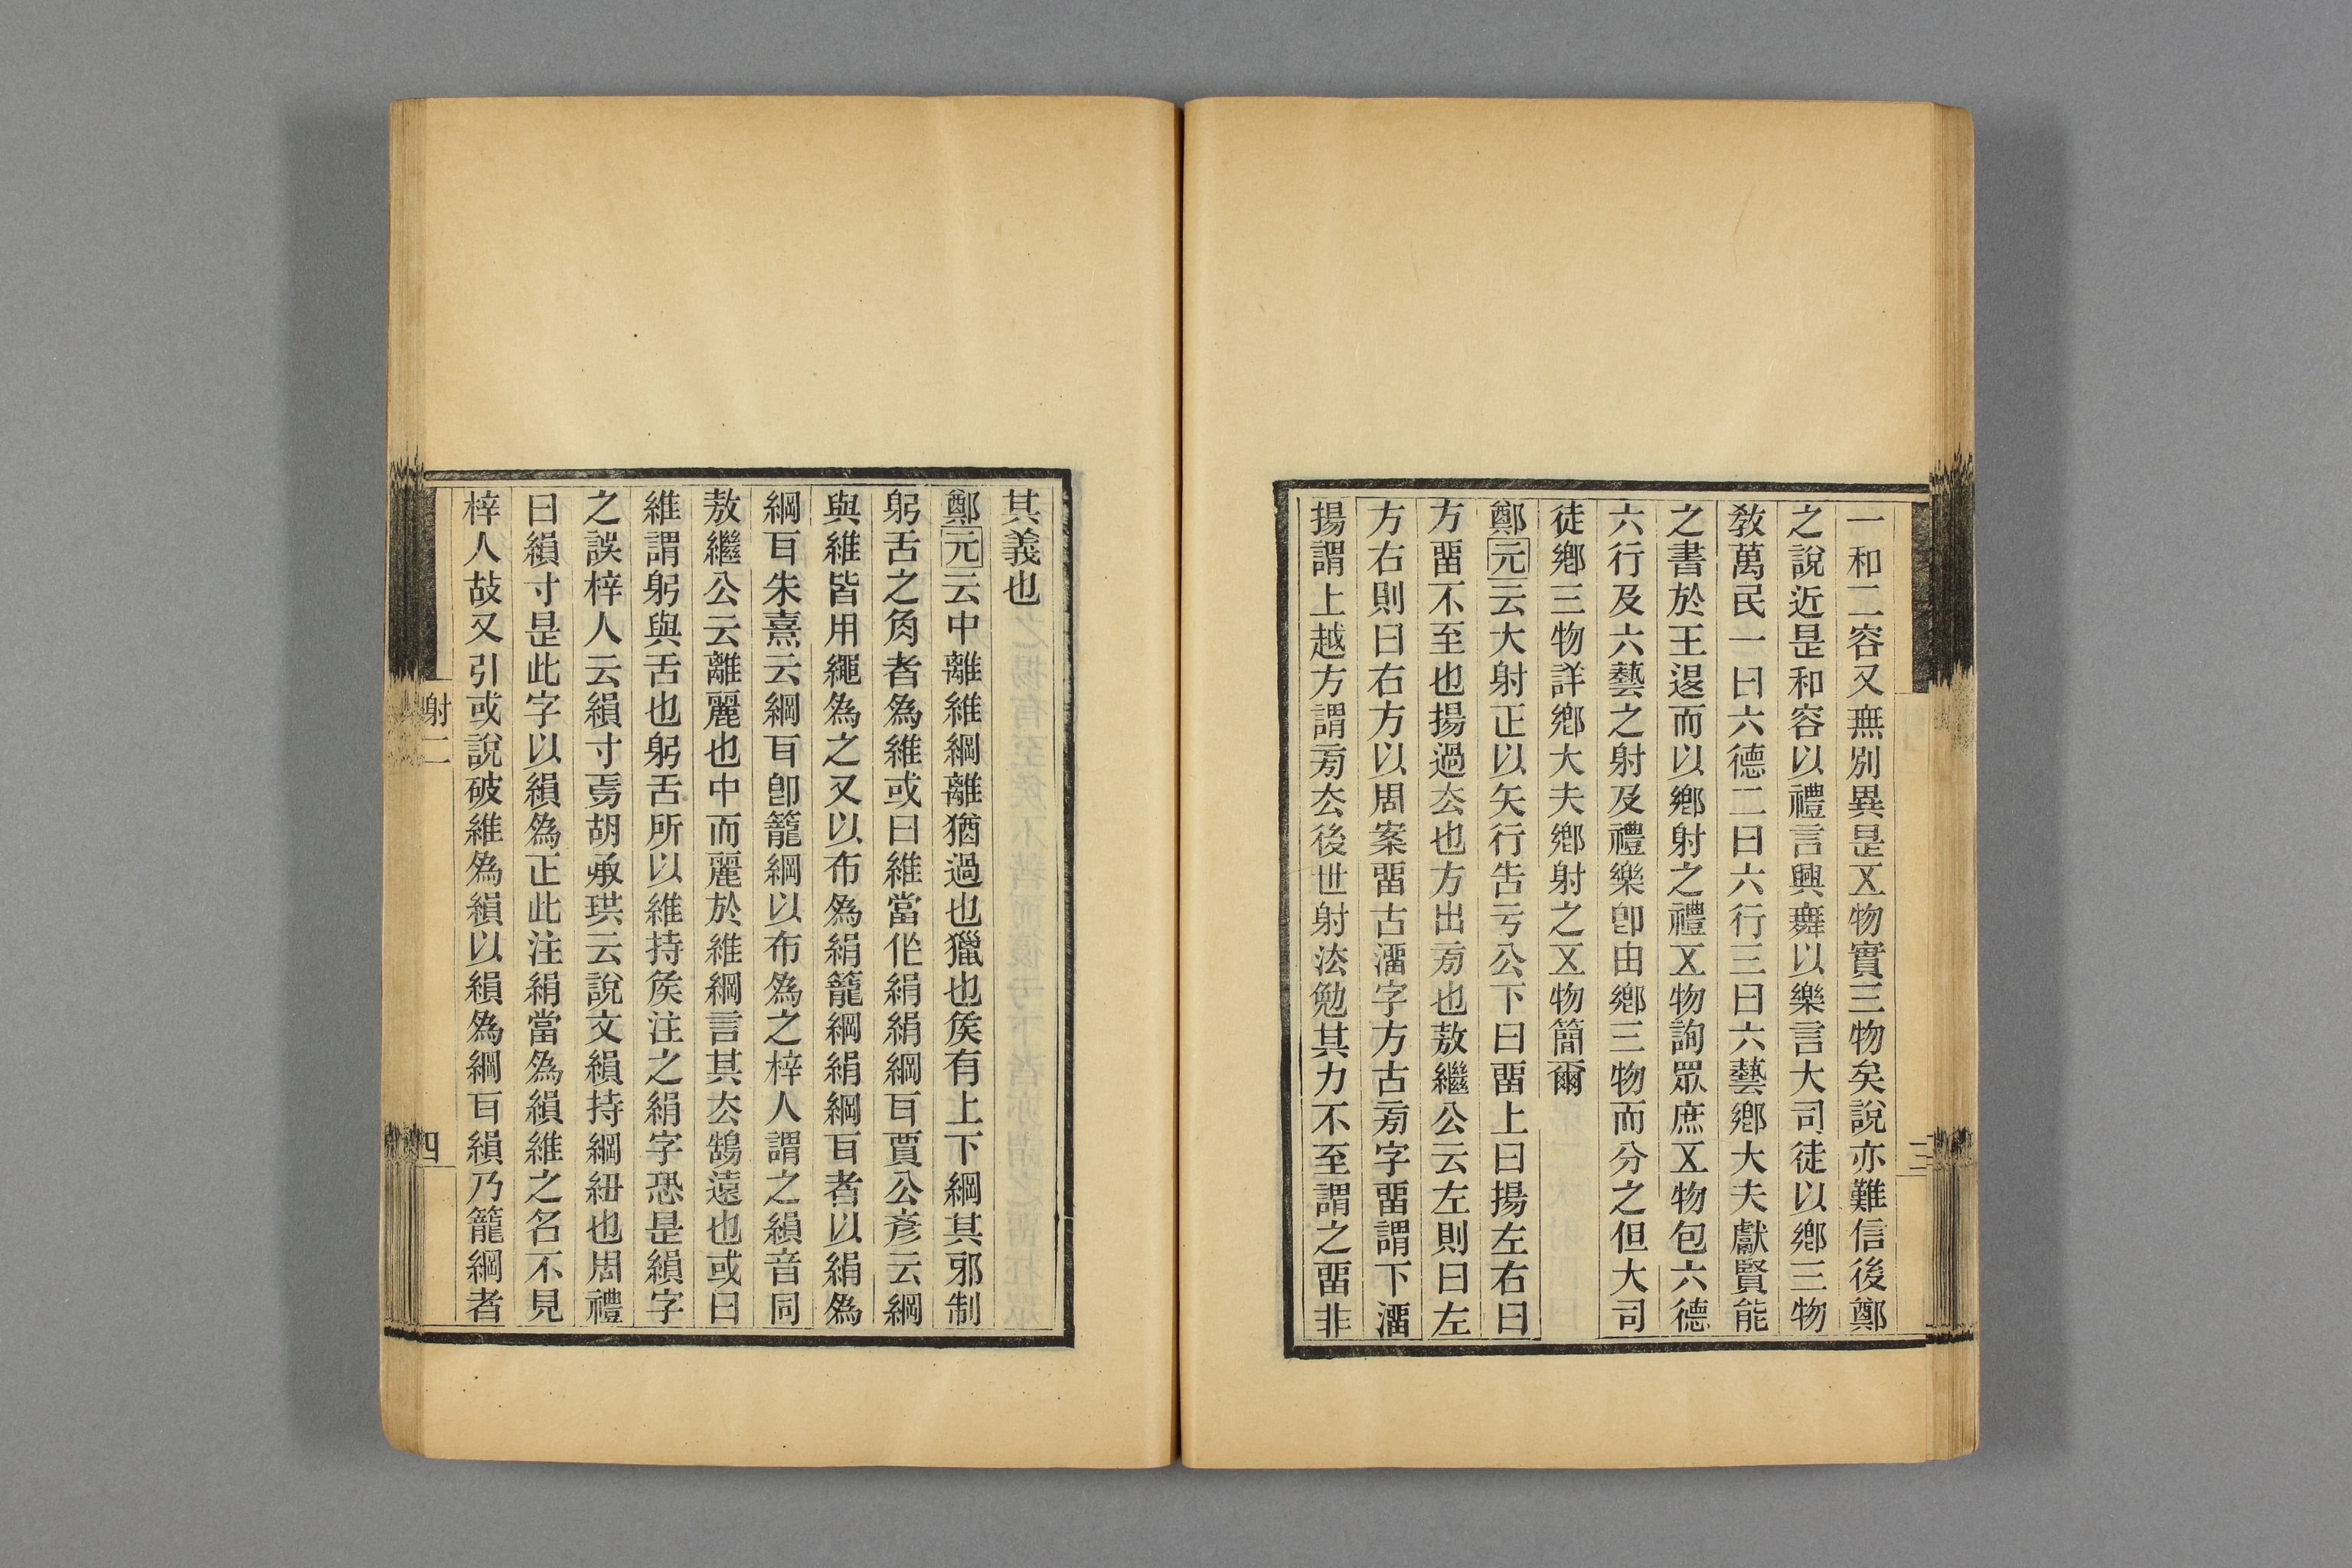 一和二容又無別異是㐅物實三物矣說亦難信後鄭
之說近是和容以禮言興舞以樂言大司徒以鄉三物
敎萬民一曰六德二曰六行三曰六藝鄉大夫獻賢能
之書於王退而以鄉射之禮㐅物詢眾庶㐅物包六德
六行及六藝之射及禮樂卽由鄉三物而分之但大司
徒鄉三物詳鄉大夫鄉射之㐅物簡爾
鄭元云大射正以矢行告亏公下曰畱上曰揚左右曰
方畱不至也揚過厺也方出𣃟也敖繼公云左則曰左
方右則曰右方以周案畱古澑字方古𣃟字畱謂下澑
揚謂上越方謂𣃟厺後世射法勉其力不至謂之畱非
三
其義也
鄭元云中離維綱離猶過也獵也矦有上下綱其邪制
躬舌之角者為維或曰維當作絹絹綱耳賈公彥云綱
與維皆用繩為之又以布為絹籠綱絹綱耳者以絹為
綱耳朱熹云綱耳卽籠綱以布為之梓人謂之縜音同
敖繼公云離麗也中而麗於維綱言其厺鵠遠也或曰
維謂躬與舌也躬舌所以維持矦注之絹字恐是縜字
之誤梓人云縜寸焉胡承珙云說文縜持綱紐也周禮
曰縜寸是此字以縜為正此注絹當為縜維之名不見
梓人故又引或說破維為縜以縜為綱耳縜乃籠綱者
射二
四